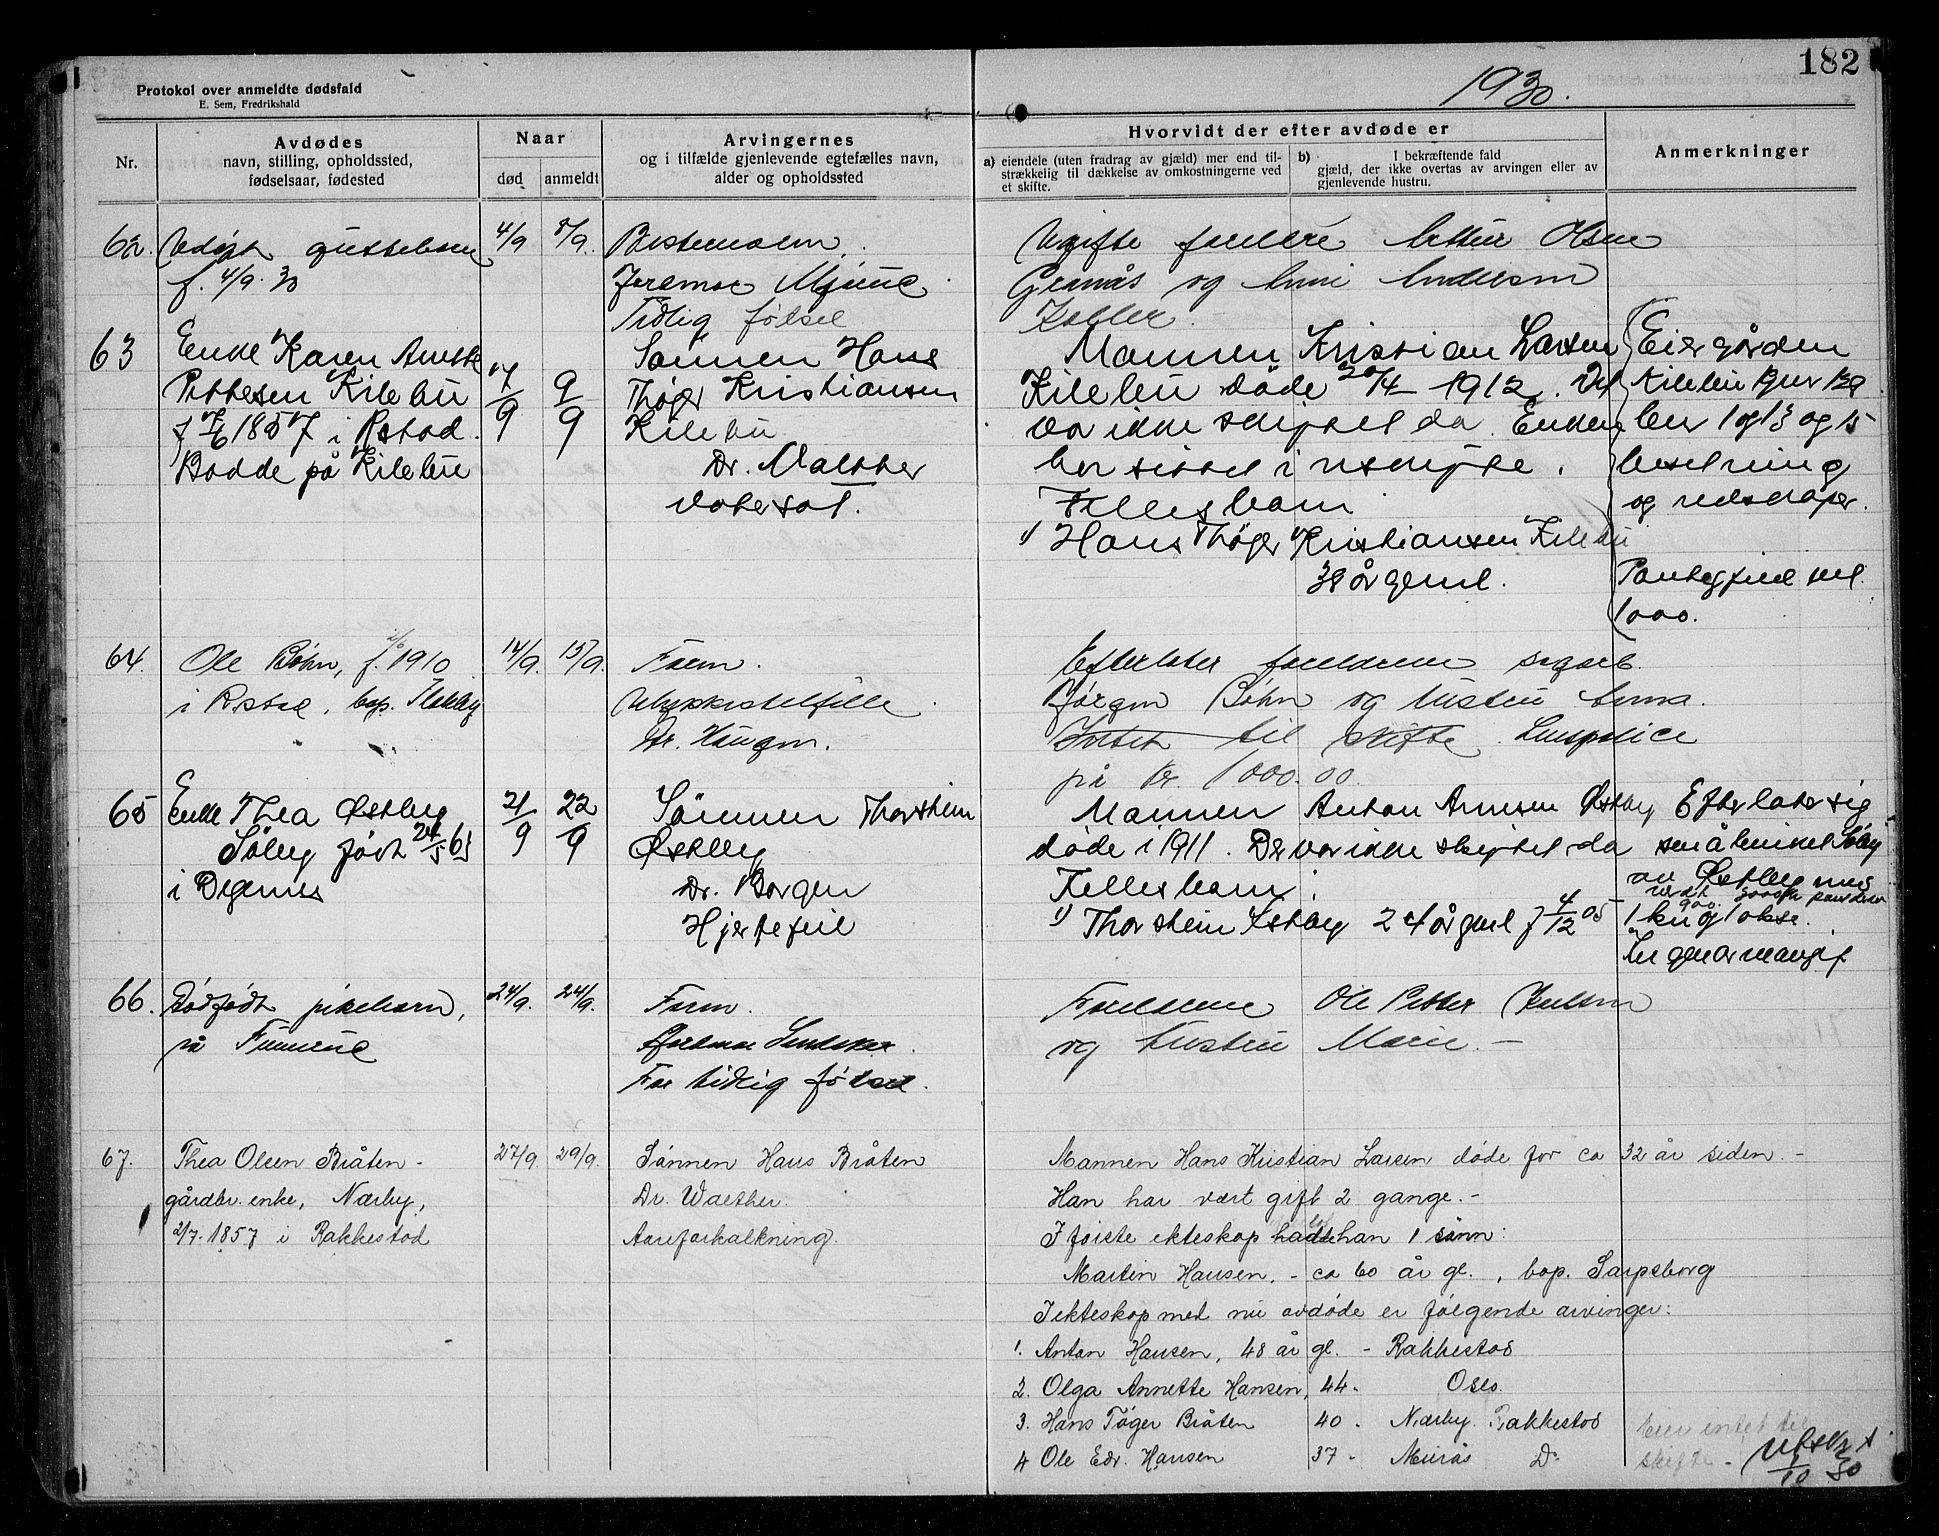 182
1930.
Protokol over anmeldte dødsfald
E. Sem, Fredrikshald
Nr.
Avdødes
navn, stilling, opholdssted,
fødselsaar, fødested
Naar
død
anmeldt
Arvingernes
og i tilfælde gjenlevende egtefælles navn,
alder og opholdssted
Hvorvidt der efter avdøde er
a) eiendele (uten fradrag av gjæld) mer end til-
strækkelig til dækkelse av omkostningerne ved
et skifte.
b) I bekræftende fald
gjæld, der ikke overtas av arvingen eller av
gjenlevende hustru.
Anmerkninger
62. guttebarn
f. 4/9.30
4/9
8/9.
Bestemoren.
Jordmor
Tidlig fødsel
Ugifte foreldre Olsen
og Andersen
63
Enke Karen
Pettersen Kilebu
1857 i Rstad.
Bodde på Kilebu
7/9
9/9
Sønnen Hans
Thøger Kristiansen
Kilebu
Dr. Walther
Mannen Kristian Larsen
Kilebu døde 20/4 1912. Det
var ikke skiftet da. Enken
har sittet i uskifte.
Fellesbarn
1) Hans Thøger Kristiansen Kilebu
38 år geml.
Eier gården
Kilebu
1 og 13 og 15
besetning
og redskaper.
Pantegjeld
1000.
64.
Ole Bøhn, f. 1910
i Rstad, bop.
14/9.
15/9.
Faren.
Ulykkestilfelle.
Dr. Haugen.
Efterlater foreldrene
Jørgen Bøhn og hustru Anna.
Intet til skifte. Livspolice
på kr. 1000.00.
65
Enke Thea Østby
født 24/5 65
i Degernes
21/9
22/9
Sønnen Thorstein
Østby
Dr. Borgen
Hjertefeil
Mannen Anton Arnesen Østby
døde i 1911. Der var ikke skiftet da
Fellesbarn:
1) Thorstein Østby 24 år gml f 4/12 05
Efterlater sig
småbruket
av Østby
1 ku og 1 okse.
66.
Dødfødt pikebarn,
24/9.
24/9.
Faren.
For tidlig fødsel.
Foreldrene Ole Petter
og hustru Marie. –
67.
Thea Olsen Bråten –
gårdbr. enke, Nærby,
2/7-1857 i Rakkestad
27/9.
29/9.
Sønnen Hans Bråten
Dr. Walther.
Aareforkalkning.
Mannen Hans Kristian Larsen døde for ca 32 år siden. –
Han har vært gift 2 gange. –
I første ekteskap hadde han 1 sønn:
Martin Hansen, – ca 60 år gl., bop. Sarpsborg
I ekteskap med nu avdøde er følgende arvinger:
1. Anton Hansen, 48 år gl. – Rakkestad
2. Olga Annette Hansen, 44 – Oslo.
3. Hans Tøger Bråten 40 – Nærby, Rakkestad
4 Ole Edv. Hansen 37 – Do
Eier intet til
skifte –
Utskr.
1/10 30